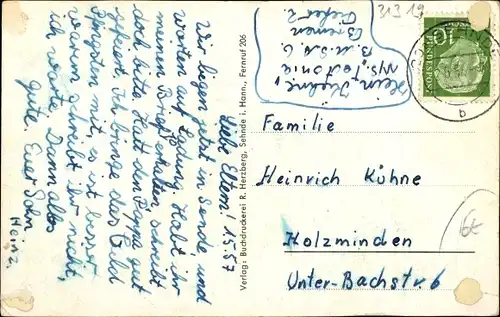 31319
Heinz Kühne,
MS „Teutonia"
B.u.S.A.G.
Bremen
Tiefer 2
10
DEUTSCHE
BUNDESPOST
b
Liebe Eltern! 1.5.57
Wir liegen jetzt in Sende und
warten auf Ladung. Habt ihr
meinen Brief erhalten, schreibt
doch bitte. Hatt den Püppa gut
Ich bringe das Geld
Pfingsten mit, es ist besser
Warum schreibt ihr nicht,
ich warte. Dann alles
gute. Euer Sohn
Heinz.
Verlag: Buchdruckerei R. Herzberg, Sehnde i. Hann., Fernruf 206
Familie
Heinrich Kühne
Holzminden
Unter-Bachstr. 6